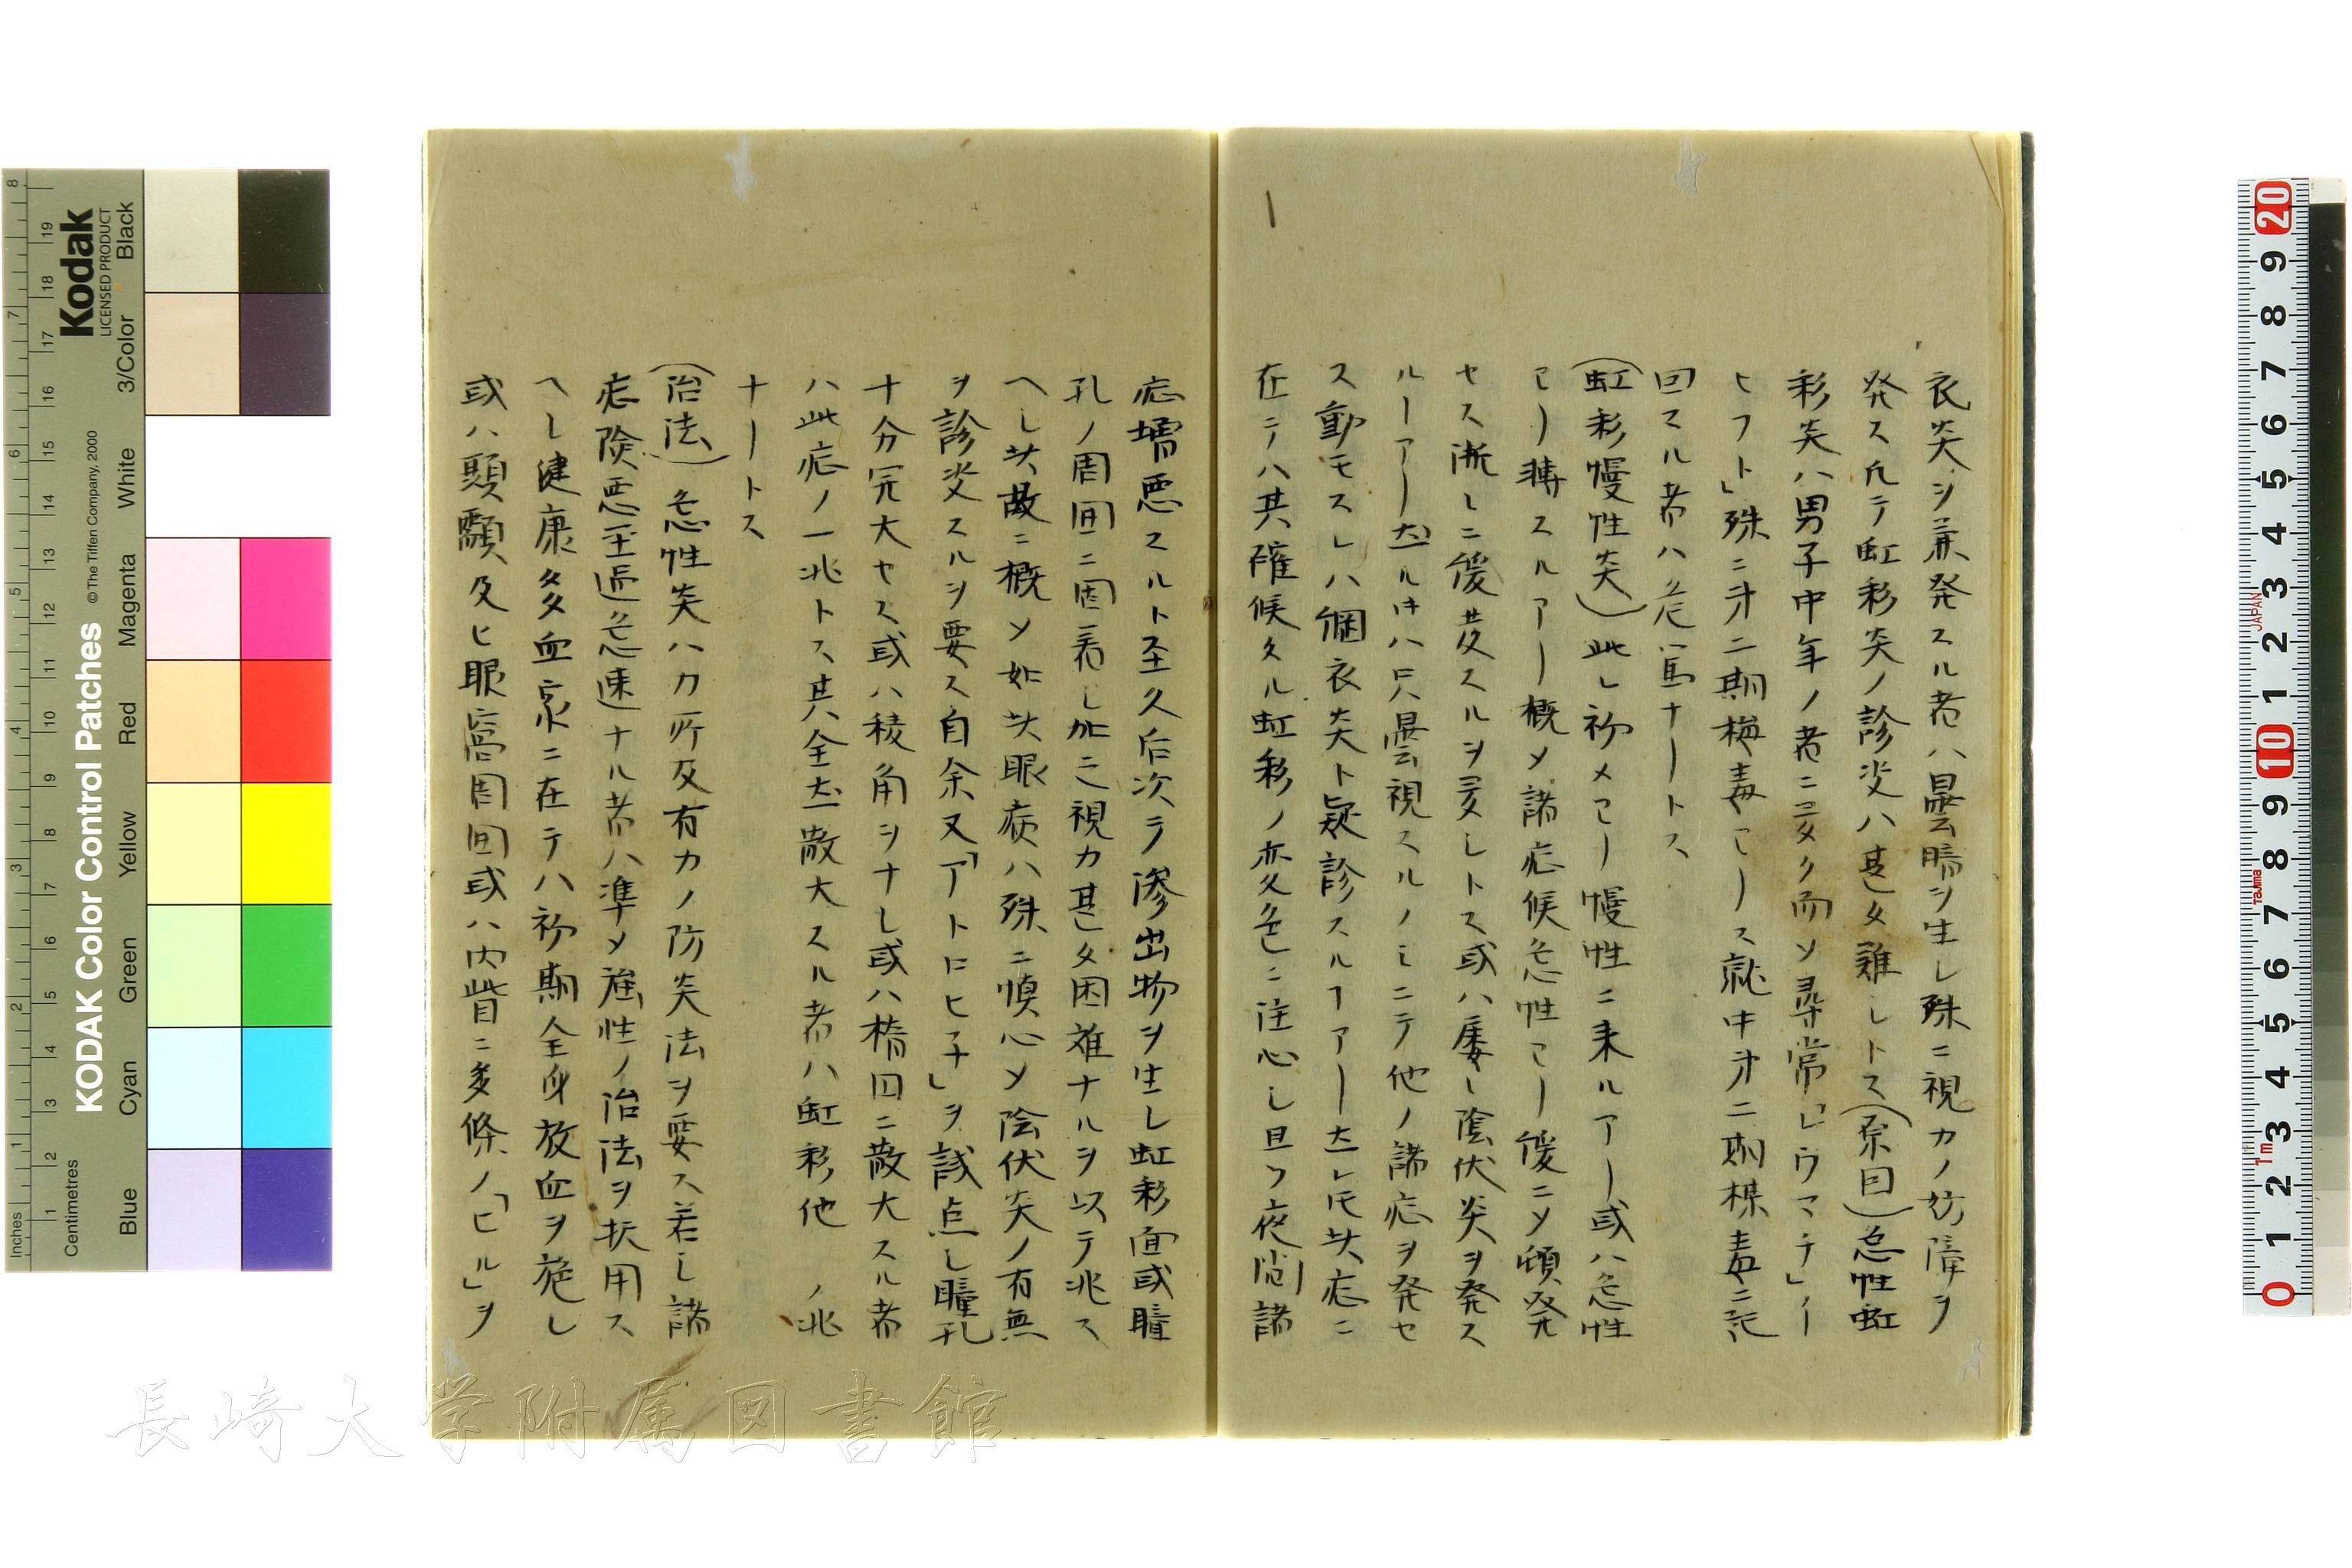 衣炎ヲ兼発スル者ハ曇暗ヲ生シ殊ニ視力ノ妨障ヲ
発ス凡テ虹彩炎ノ診察ハ甚タ難シトス(原因)急性虹
彩炎ハ男子中年ノ者ニ多ク而ソ尋常「レウマチ」
ヒフト」殊ニ才二期梅毒 ス就中才二期梅毒ニ
回スル者ハ危篤ナートス
(虹彩慢性炎)此レ初メ 慢性ニ来ルアー或ハ急性
 概メ諸症候急性 緩ニメ頓発
セス漸レニ後発スルヲ多シトス或ハ屡レ陰伏炎ヲ発ス
ルアー ハ只曇視スルノミニテ他ノ諸症ヲ発セ
ス動モスレハ網衣炎ト疑診スルアー 共症ニ
在テハ其確候タル虹彩ノ変色ニ注心し且フ夜間諸
症増悪スルト至久后次テ滲出物ヲ生レ虹彩面或瞳
孔ノ周囲ニ固着し加之視力甚タ困難ナルヲ以テ兆ス
ヘし共故ニ概メ如共眼病ハ殊ニ慎心メ陰伏炎ノ有無
ヲ診察スルヲ要ス自余又「アトロヒ子」ヲ試点し瞳孔
十分完大セス或ハ稜角ヲナし或ハ楕円ニ散大スル者
ハ此症ノ一兆トス其全 散大スル者ハ虹彩他 ノ兆
ナートス
(治法)急性炎ハ力所及有力ノ防炎法ヲ要ス若し諸
症険悪至過急速ナル者ハ準メ強性ノ治法ヲ扶用ス
ヘし健康多血家ニ在テハ初期全身放血ヲ施し
或ハ顳顬及ヒ眼窩周囲或ハ内眥ニ多條ノ「ヒル」ヲ
KODAK Color Control Patches
© The Tiffen Company, 2000
Kodak
LICENSED PRODUCT
Inches
Centimetres
Blue Cyan Green Yellow Red Magenta White 3/Color Black
長崎大学附属図書館
JAPAN
Tajima
1m